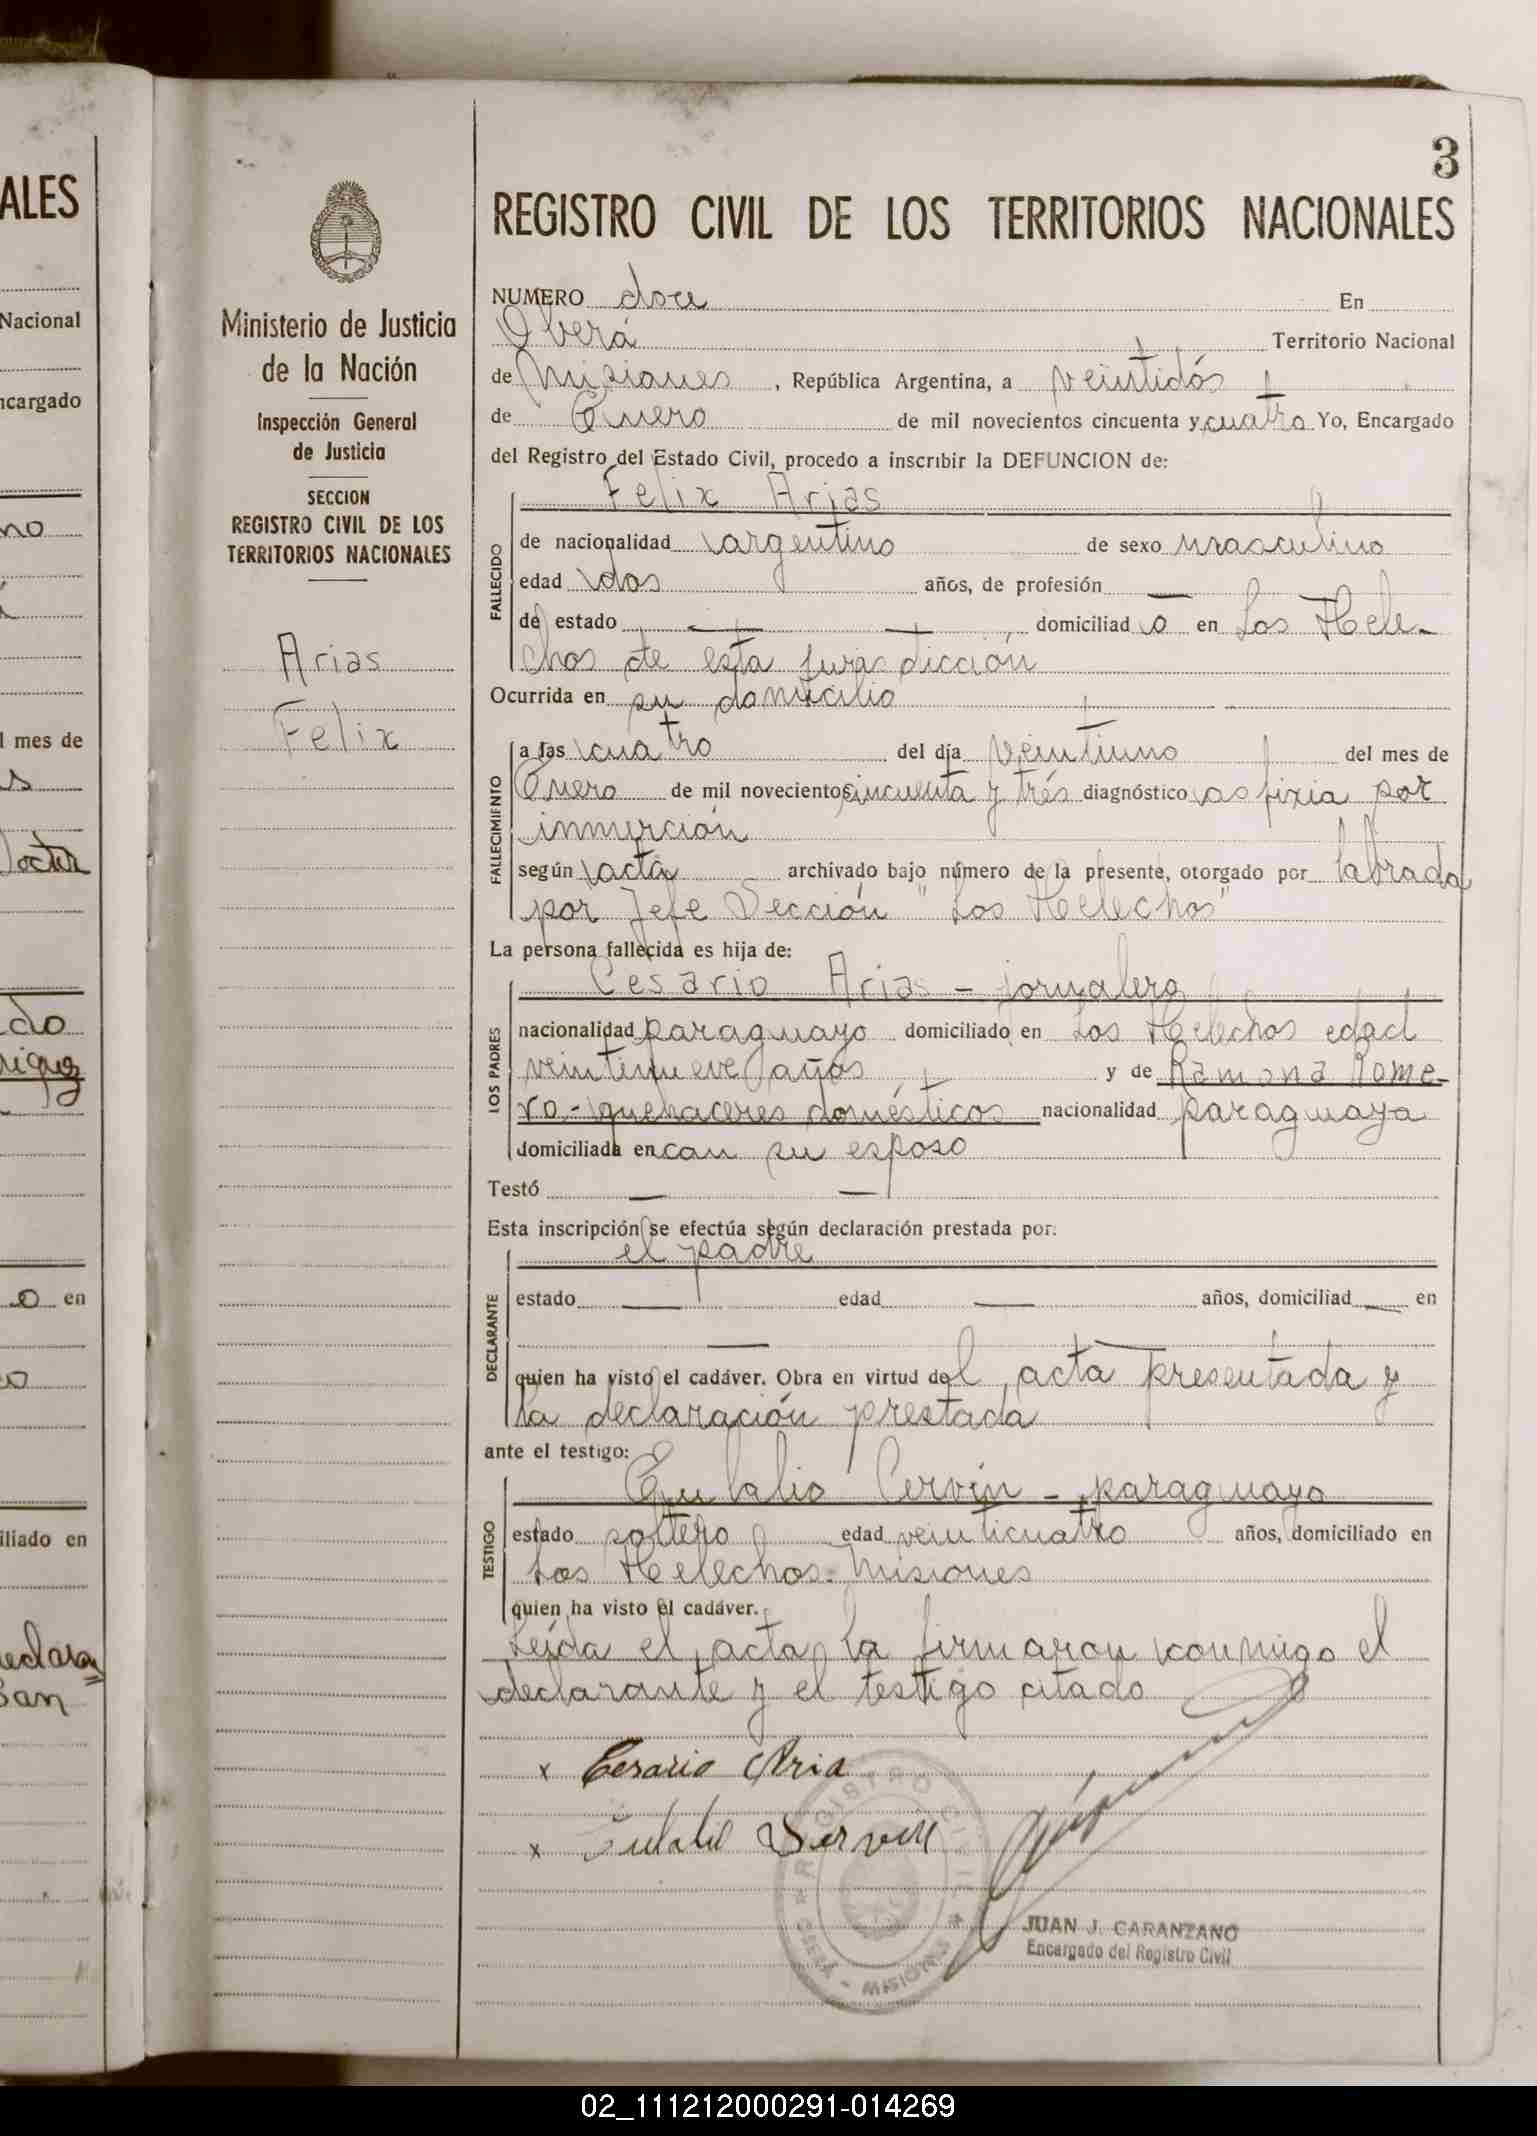 3
ALES
Nacional
ncargado
no
l mes de
s
do
o en
iliado en
Ministerio de Justicia
de la Nación
Inspección General
de Justicia
SECCION
REGISTRO CIVIL DE LOS
TERRITORIOS NACIONALES
Arias
Felix
REGISTRO CIVIL DE LOS TERRITORIOS NACIONALES
NUMERO doce En
Oberá Territorio Nacional
de Misiones, República Argentina, a veintidós
de Enero de mil novecientos cincuenta y cuatro Yo, Encargado
del Registro del Estado Civil, procedo a inscribir la DEFUNCION de:
Felix Arias
FALLECIDO
de nacionalidad argentino de sexo masculino
edad dos años, de profesión —
de estado — — domiciliado en Los Hele-
chos de esta jurisdicción
Ocurrida en su domicilio
FALLECIMIENTO
a las cuatro del día veintiuno del mes de
Enero de mil novecientos cincuenta y trés diagnóstico asfixia por
inmurción
según acta archivado bajo número de la presente, otorgado por labrada
por Jefe Sección "Los Helechos"
La persona fallecida es hija de:
LOS PADRES
Cesario Arias - jornalero
nacionalidad paraguayo domiciliado en Los Helechos edad
veintinueve años y de Ramona Rome-
ro - quehaceres domésticos nacionalidad paraguaya
domiciliada en con su esposo
Testó — —
Esta inscripción se efectúa según declaración prestada por:
el padre
DECLARANTE
estado — edad — años, domiciliad — en
—
quien ha visto el cadáver. Obra en virtud del acta presentada y
la declaración prestada
ante el testigo:
TESTIGO
Eulalio Cervin - paraguayo
estado soltero edad veinticuatro años, domiciliado en
Los Helechos-Misiones
quien ha visto el cadáver.
Leída el acta la firmaron conmigo el
declarante y el testigo citado
x Cesario Aria
x Servin
REGISTRO CIVIL
OBERÁ - MISIONES
JUAN J. CARANZANO
Encargado del Registro Civil
02_111212000291-014269